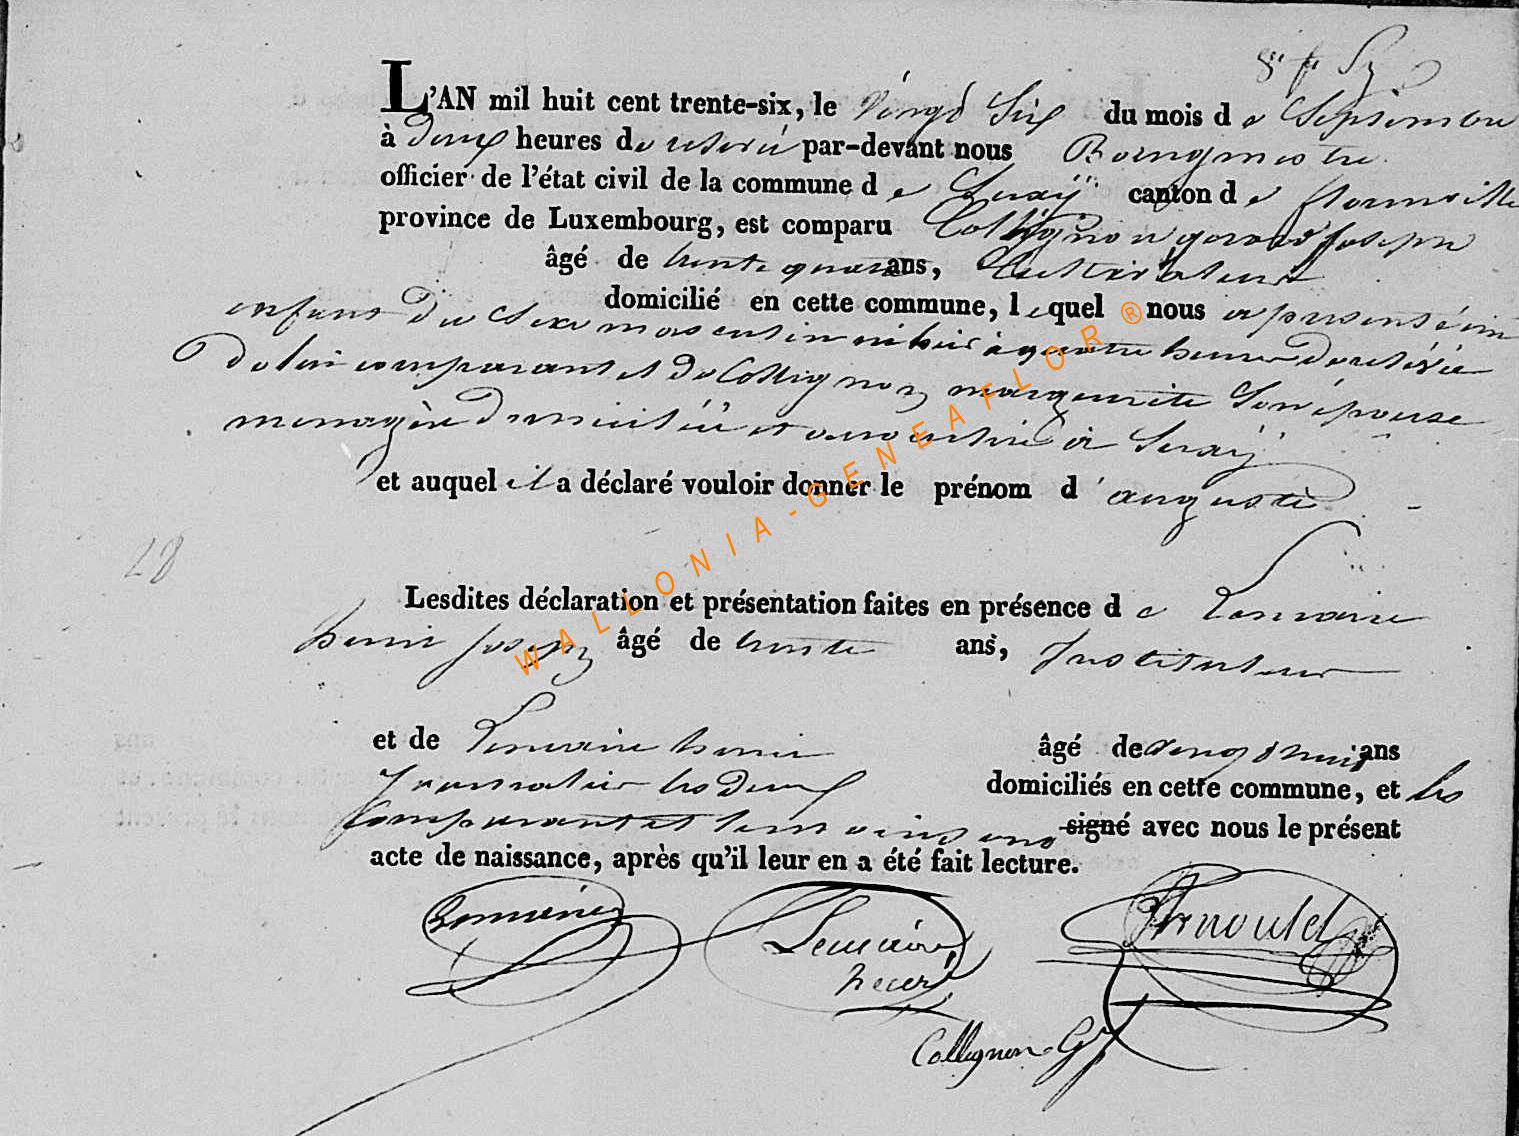 L'AN mil huit cent trente-six, le vingt six du mois de Septembre
à deux heures de relevée par-devant nous Bourgmestre
officier de l'état civil de la commune de canton de florenville
province de Luxembourg, est comparu Collignon gerard Joseph
âgé de trente quatre ans, Cultivateur
domicilié en cette commune, lequel nous a présenté un
enfant du Sexe masculin né hier à quatre heures de relevée
de lui comparant et de Collignon marguerite Son épouse
menagère domiciliée et à
et auquel il a déclaré vouloir donner le prénom d'auguste
28
Lesdites déclaration et présentation faites en présence de Lemaire
henri Joseph âgé de trente ans, Instituteur
et de Lemaire henri âgé de ans
Journalier les deux domiciliés en cette commune, et les
Comparant et temoins ont signé avec nous le présent
acte de naissance, après qu'il leur en a été fait lecture.
Lemaire
henri
Arnould
Collignon Gj
WALLONIA-GENEAFLOR®